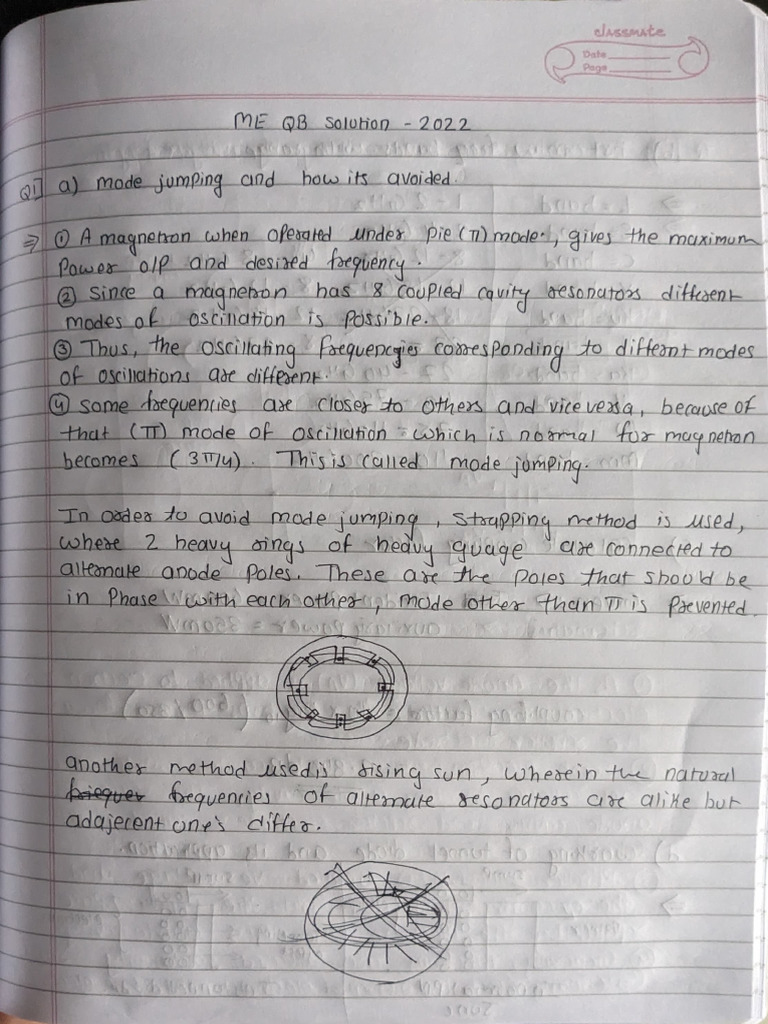 classmate
Date
Page
ME QB Solution - 2022
Q1] a) mode jumping and how its avoided.
⇒ ① A magnetron when operated under pie (π) mode, gives the maximum
Power o/p and desired frequency.
② Since a magnetron has 8 coupled cavity resonators different
modes of oscillation is possible.
③ Thus, the oscillating frequencies corresponding to differnt modes
of oscillations are different.
④ some frequencies are closer to others and vice versa, because of
that (π) mode of oscillation which is normal for magnetron
becomes (3π/4). This is called mode jumping.
In order to avoid mode jumping, strapping method is used,
where 2 heavy rings of heavy guage are connected to
alternate anode poles. These are the poles that should be
in Phase with each other, mode other than π is prevented.
another method used is rising sun, wherein the natural
frequencies of alternate resonators are alike but
adajecent one's differ.